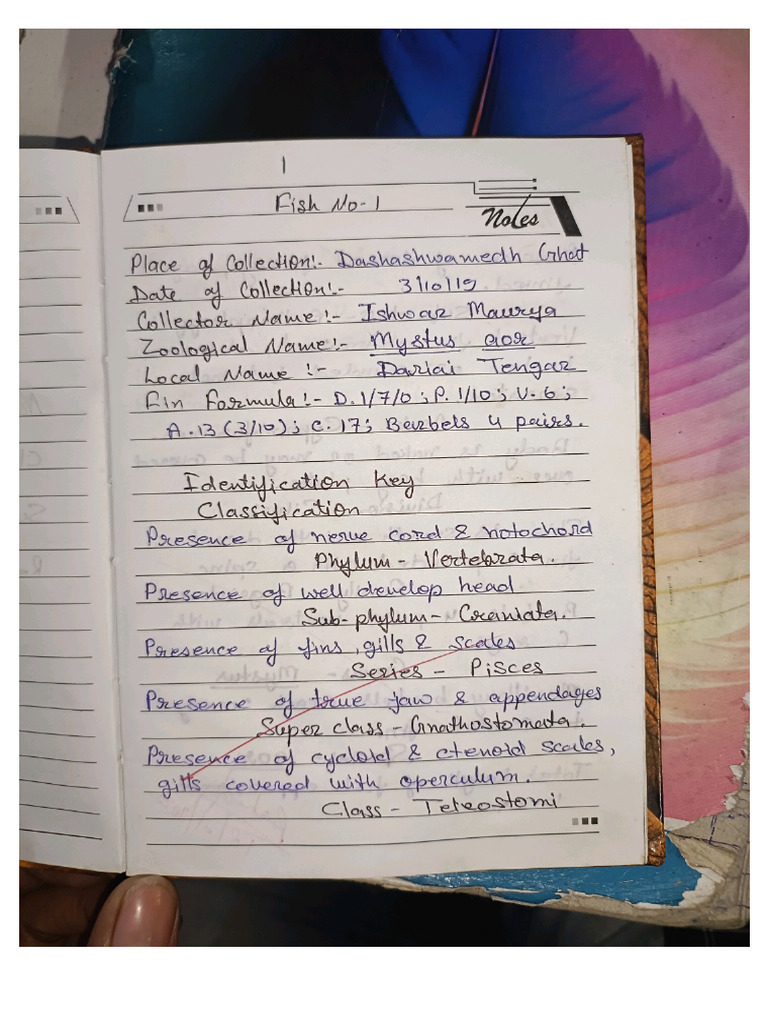 1
Fish No-1
Notes
Place of Collection:- Dashashwamedh Ghat
Date of Collection:- 3/10/19
Collector Name :- Ishwar Maurya
Zoological Name:- Mystus aor
Local Name :- Dariai Tengar
Fin Formula:- D.1/7/0; P.1/10; V.6;
A.13 (3/10); C.17; Barbels 4 pairs.
Identification Key
Classification
Presence of nerve cord & notochord
Phylum - Vertebrata.
Presence of well develop head
Sub-phylum - Craniata.
Presence of fins, gills & scales
Series - Pisces
Presence of true jaw & appendages
Super class - Gnathostomata.
Presence of cycloid & ctenoid scales,
gills covered with operculum.
Class - Teleostomi